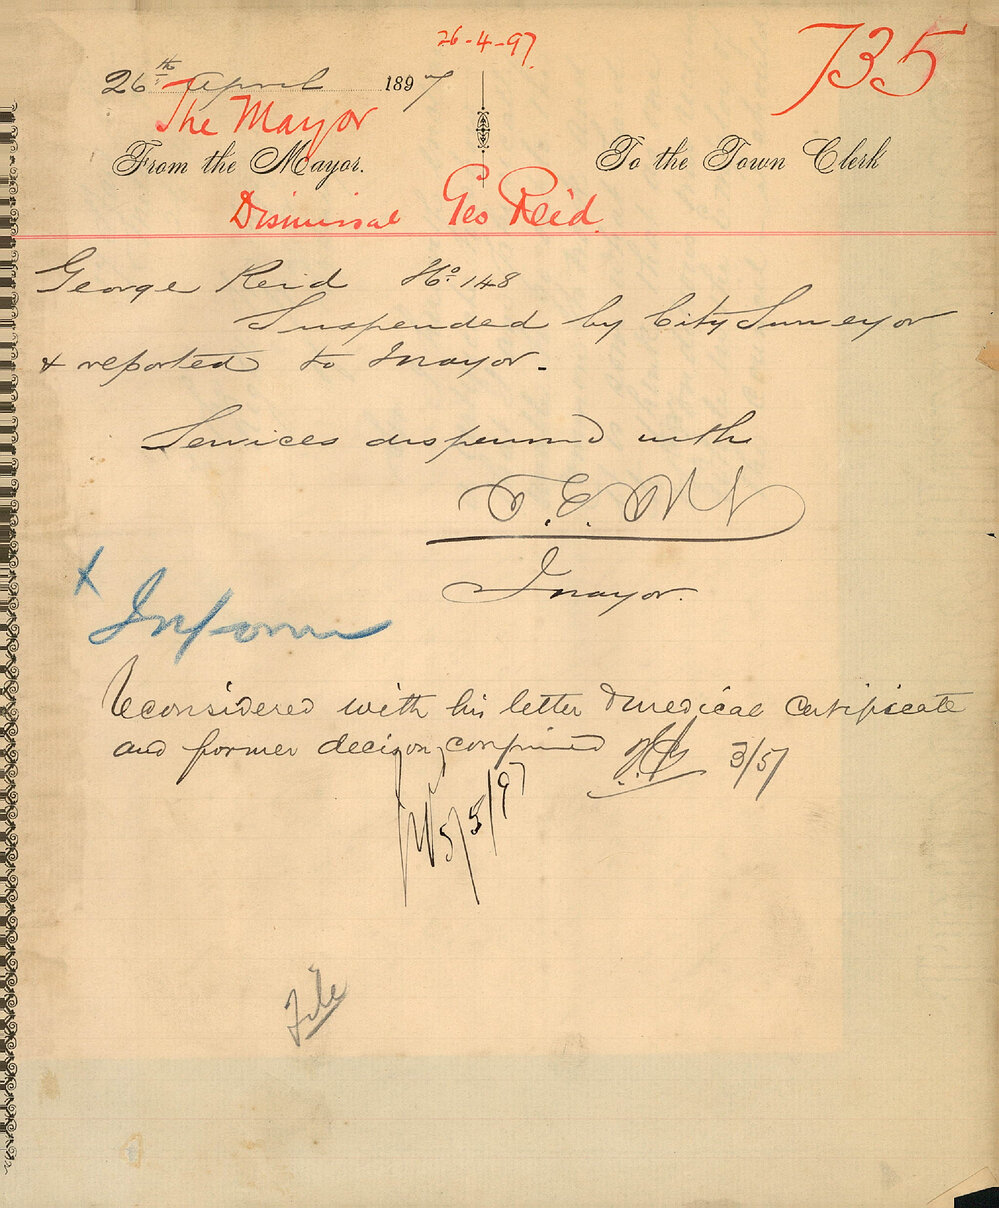 26-4-97
735
26th April 1897
The Mayor
From the Mayor. To the Town Clerk
Dismissal Geo Reid
George Reid No. 148
Suspended by City Surveyor
& reported to Mayor -
Services dispensed with
Mayor.
x Inform
Reconsidered with his letter & medical certificate
and former decision confirmed 3/5/
5/5/97
File